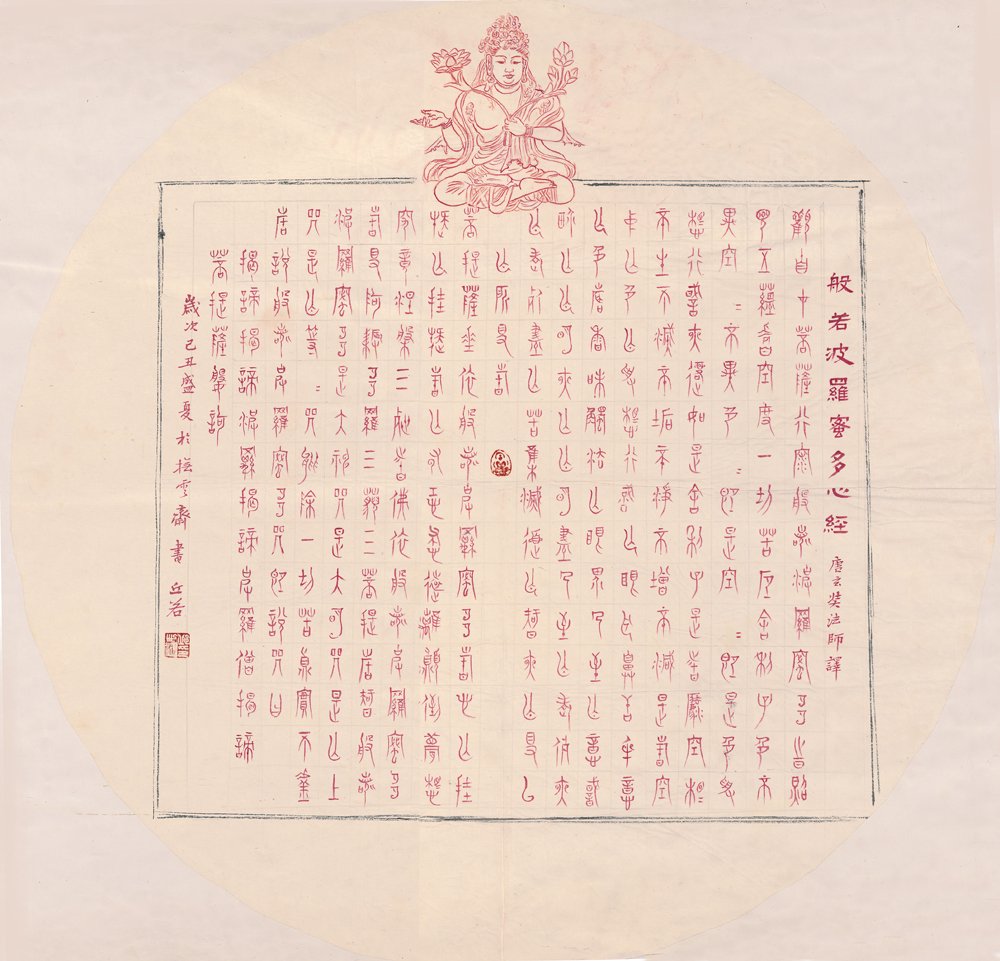 般若波羅蜜多心經 唐玄奘法師譯
觀自在菩薩行深般若波羅蜜多時照
見五蘊皆空度一切苦厄舍利子色不
異空〻不異色〻即是空〻即是色受
想行識亦復如是舍利子是諸法空相
不生不滅不垢不淨不增不減是故空
中无色无受想行識无眼耳鼻舌身意
无色聲香味觸法无眼界乃至无意識
界无无明亦无无明盡乃至无老死亦
无老死盡无苦集滅道无智亦无得以
无所得故
菩提薩埵依般若波羅蜜多故心无罣
礙无罣礙故无有恐怖遠離顛倒夢想
究竟涅槃三世諸佛依般若波羅蜜多
故得阿耨多羅三藐三菩提故知般若
波羅蜜多是大神咒是大明咒是无上
咒是无等〻咒能除一切苦真實不虛
故說般若波羅蜜多咒即說咒曰
揭諦揭諦波羅揭諦波羅僧揭諦
菩提薩婆訶
歲次己丑盛夏於雲齋書 丘若